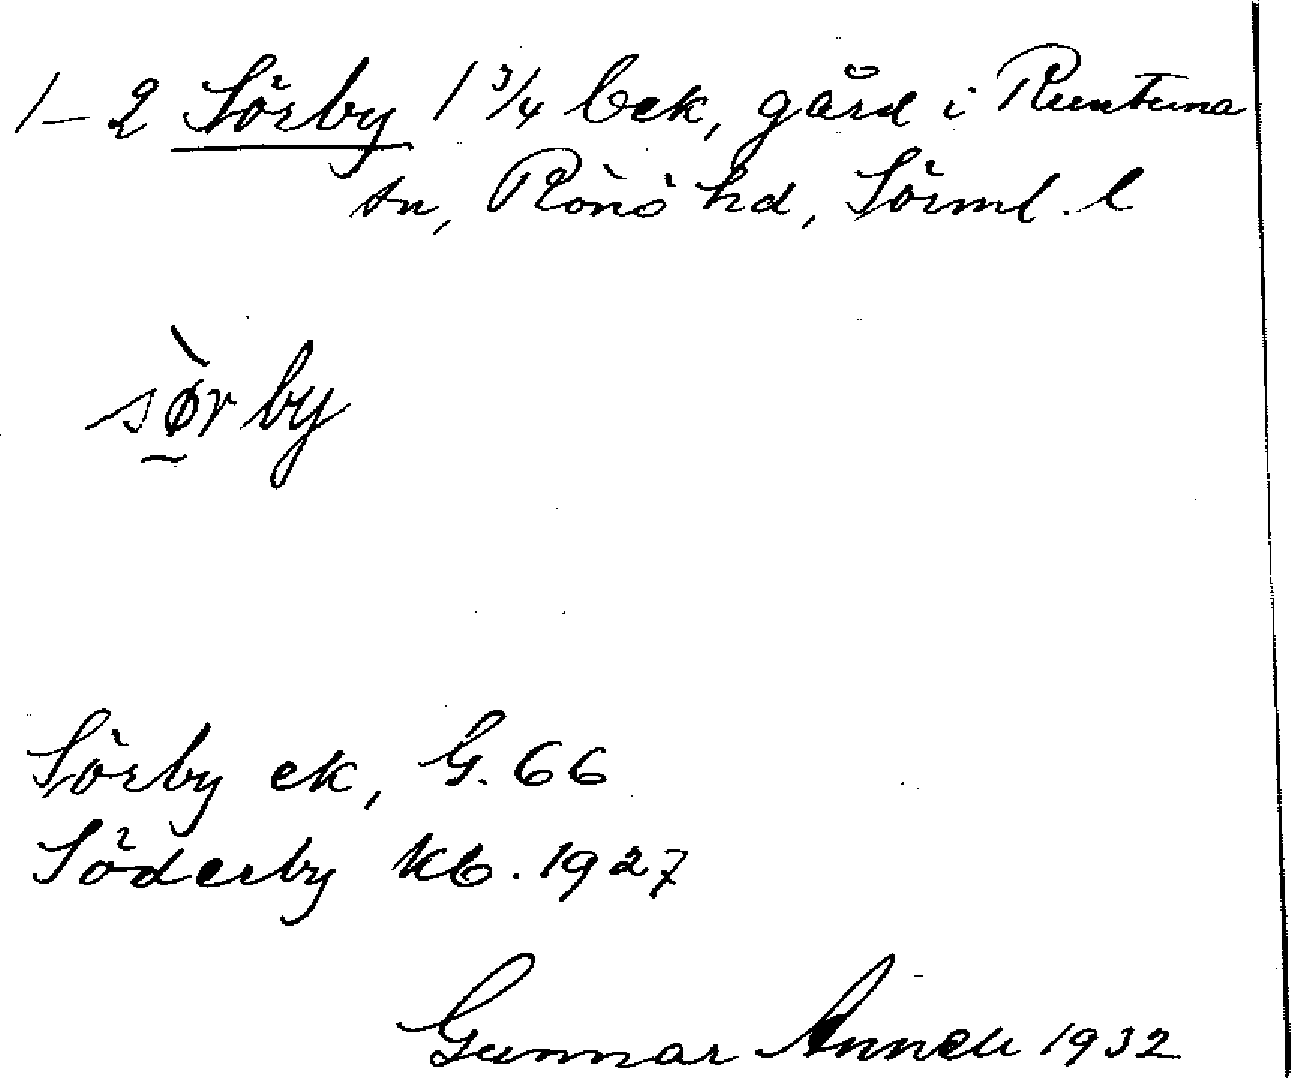 1–2 Sörby 1 3/4 bek, gård i Runtuna
sn, Rönö hd, Sörml. l
sø̀r by
Sörby ek, G. 66
Söderby kb. 1927
Gunnar Annell 1932